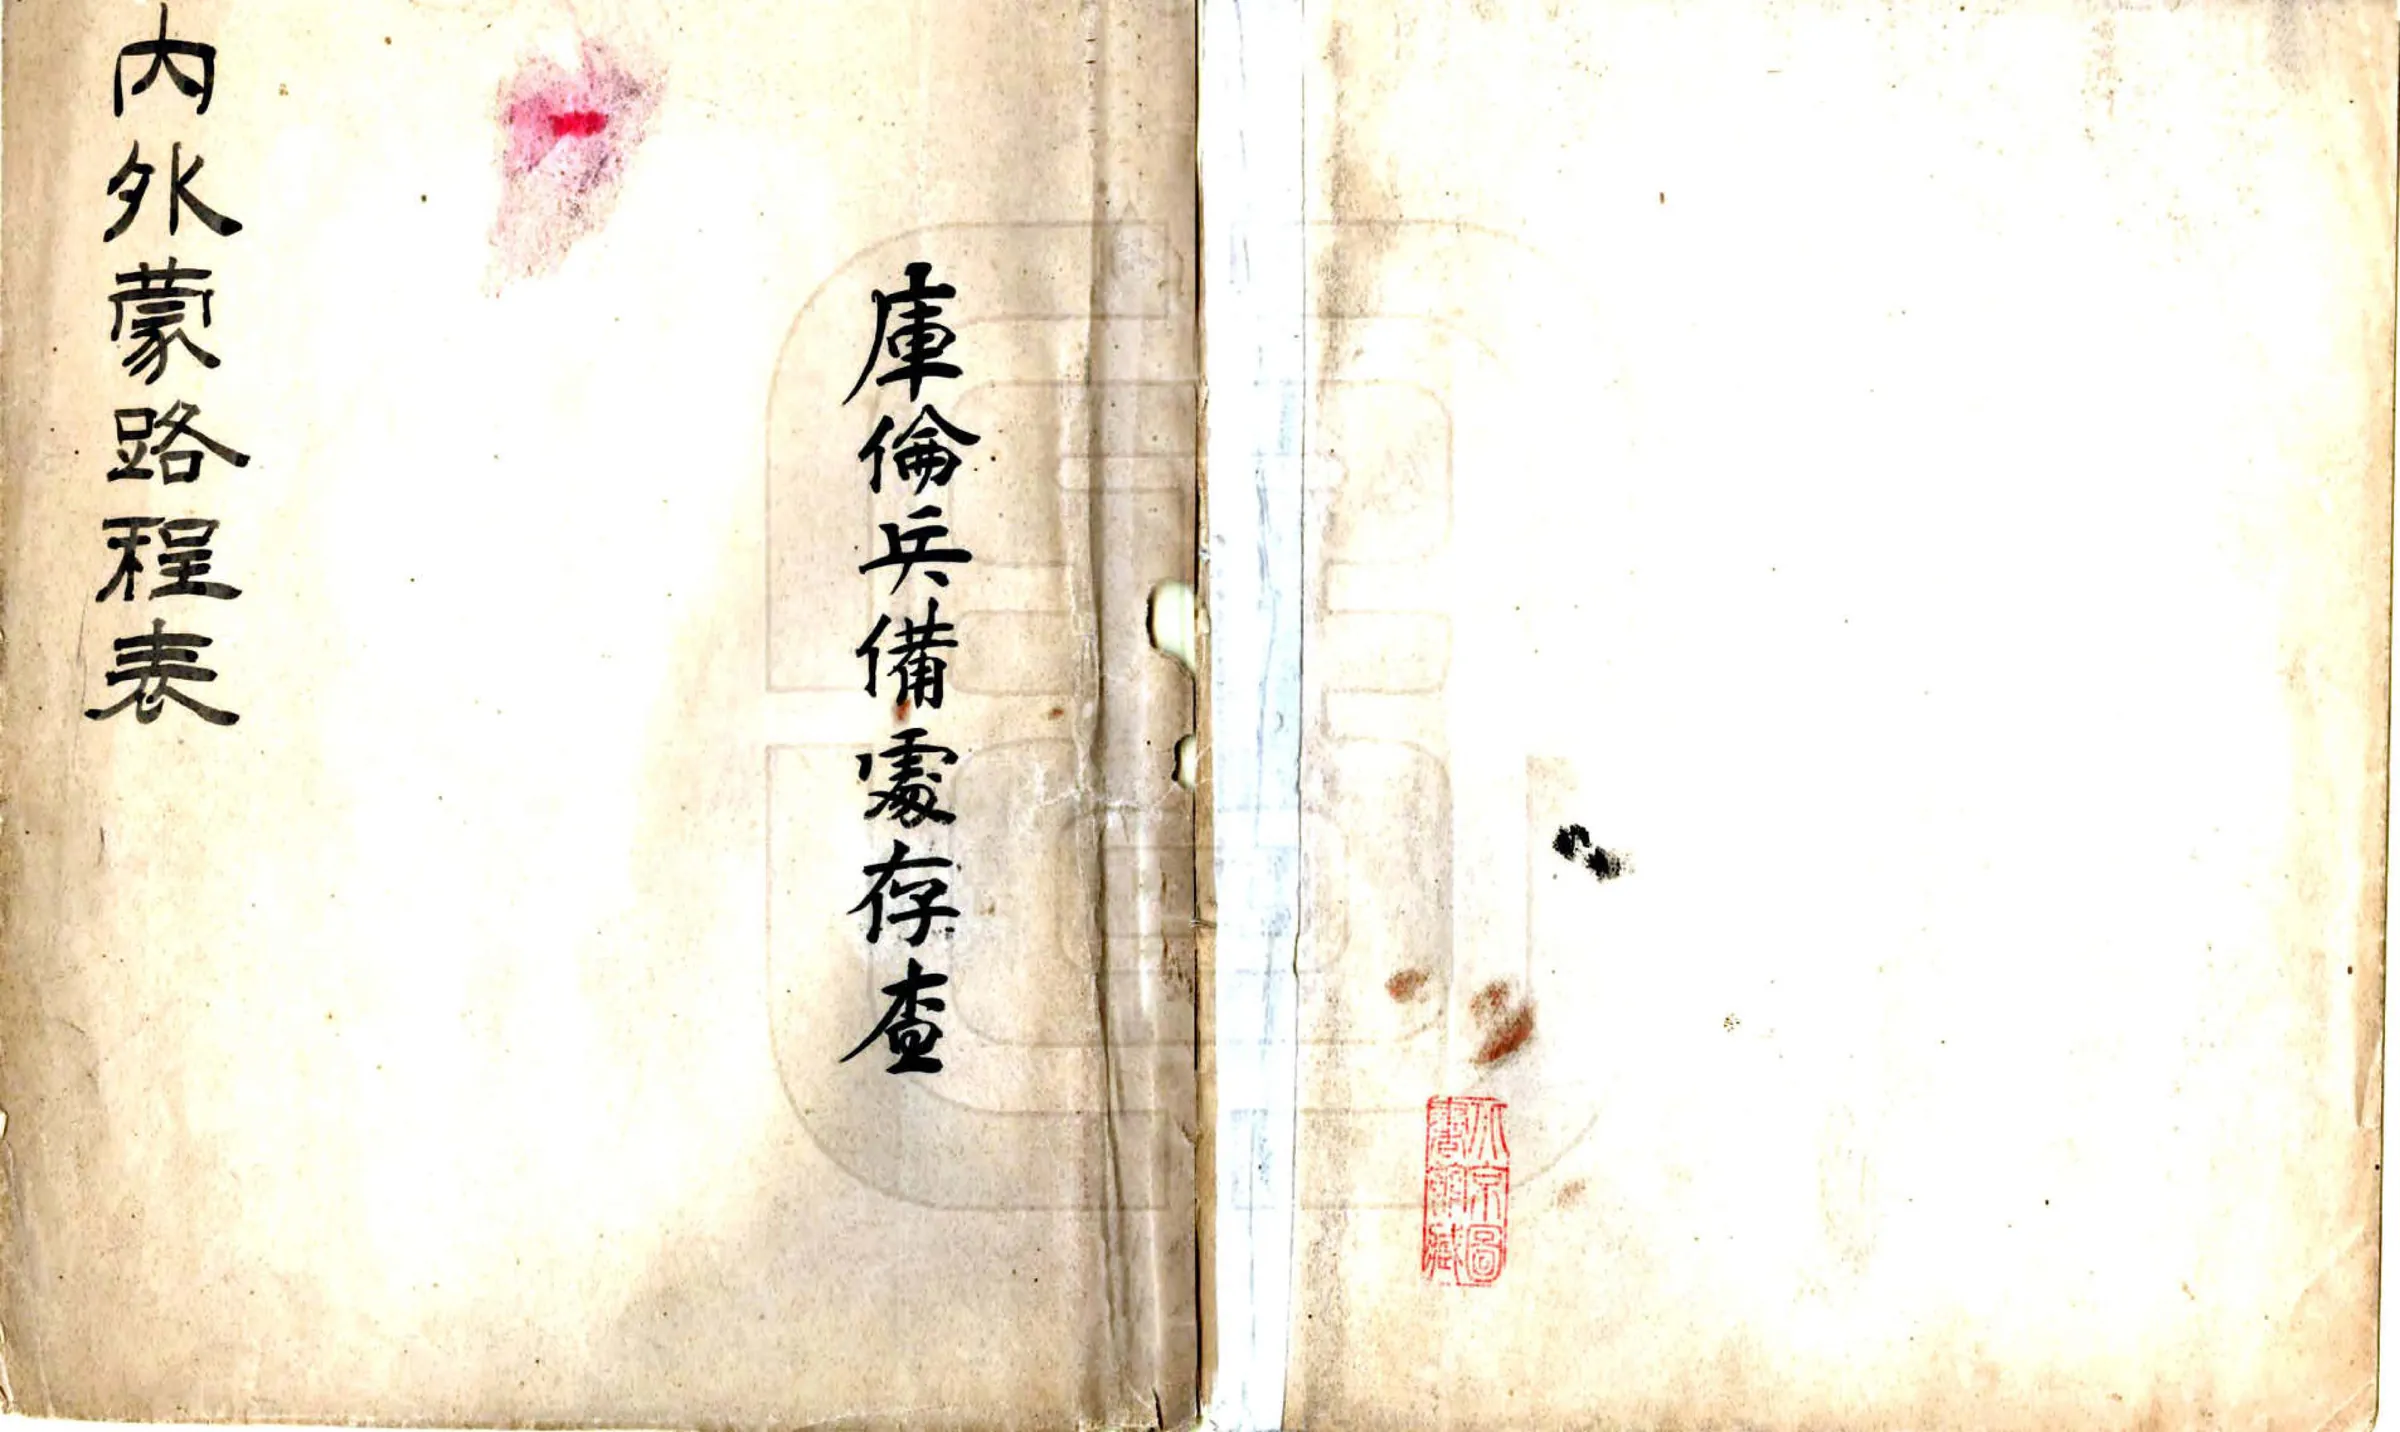 北京圖
書館藏
庫倫兵備處存查
內外蒙路程表